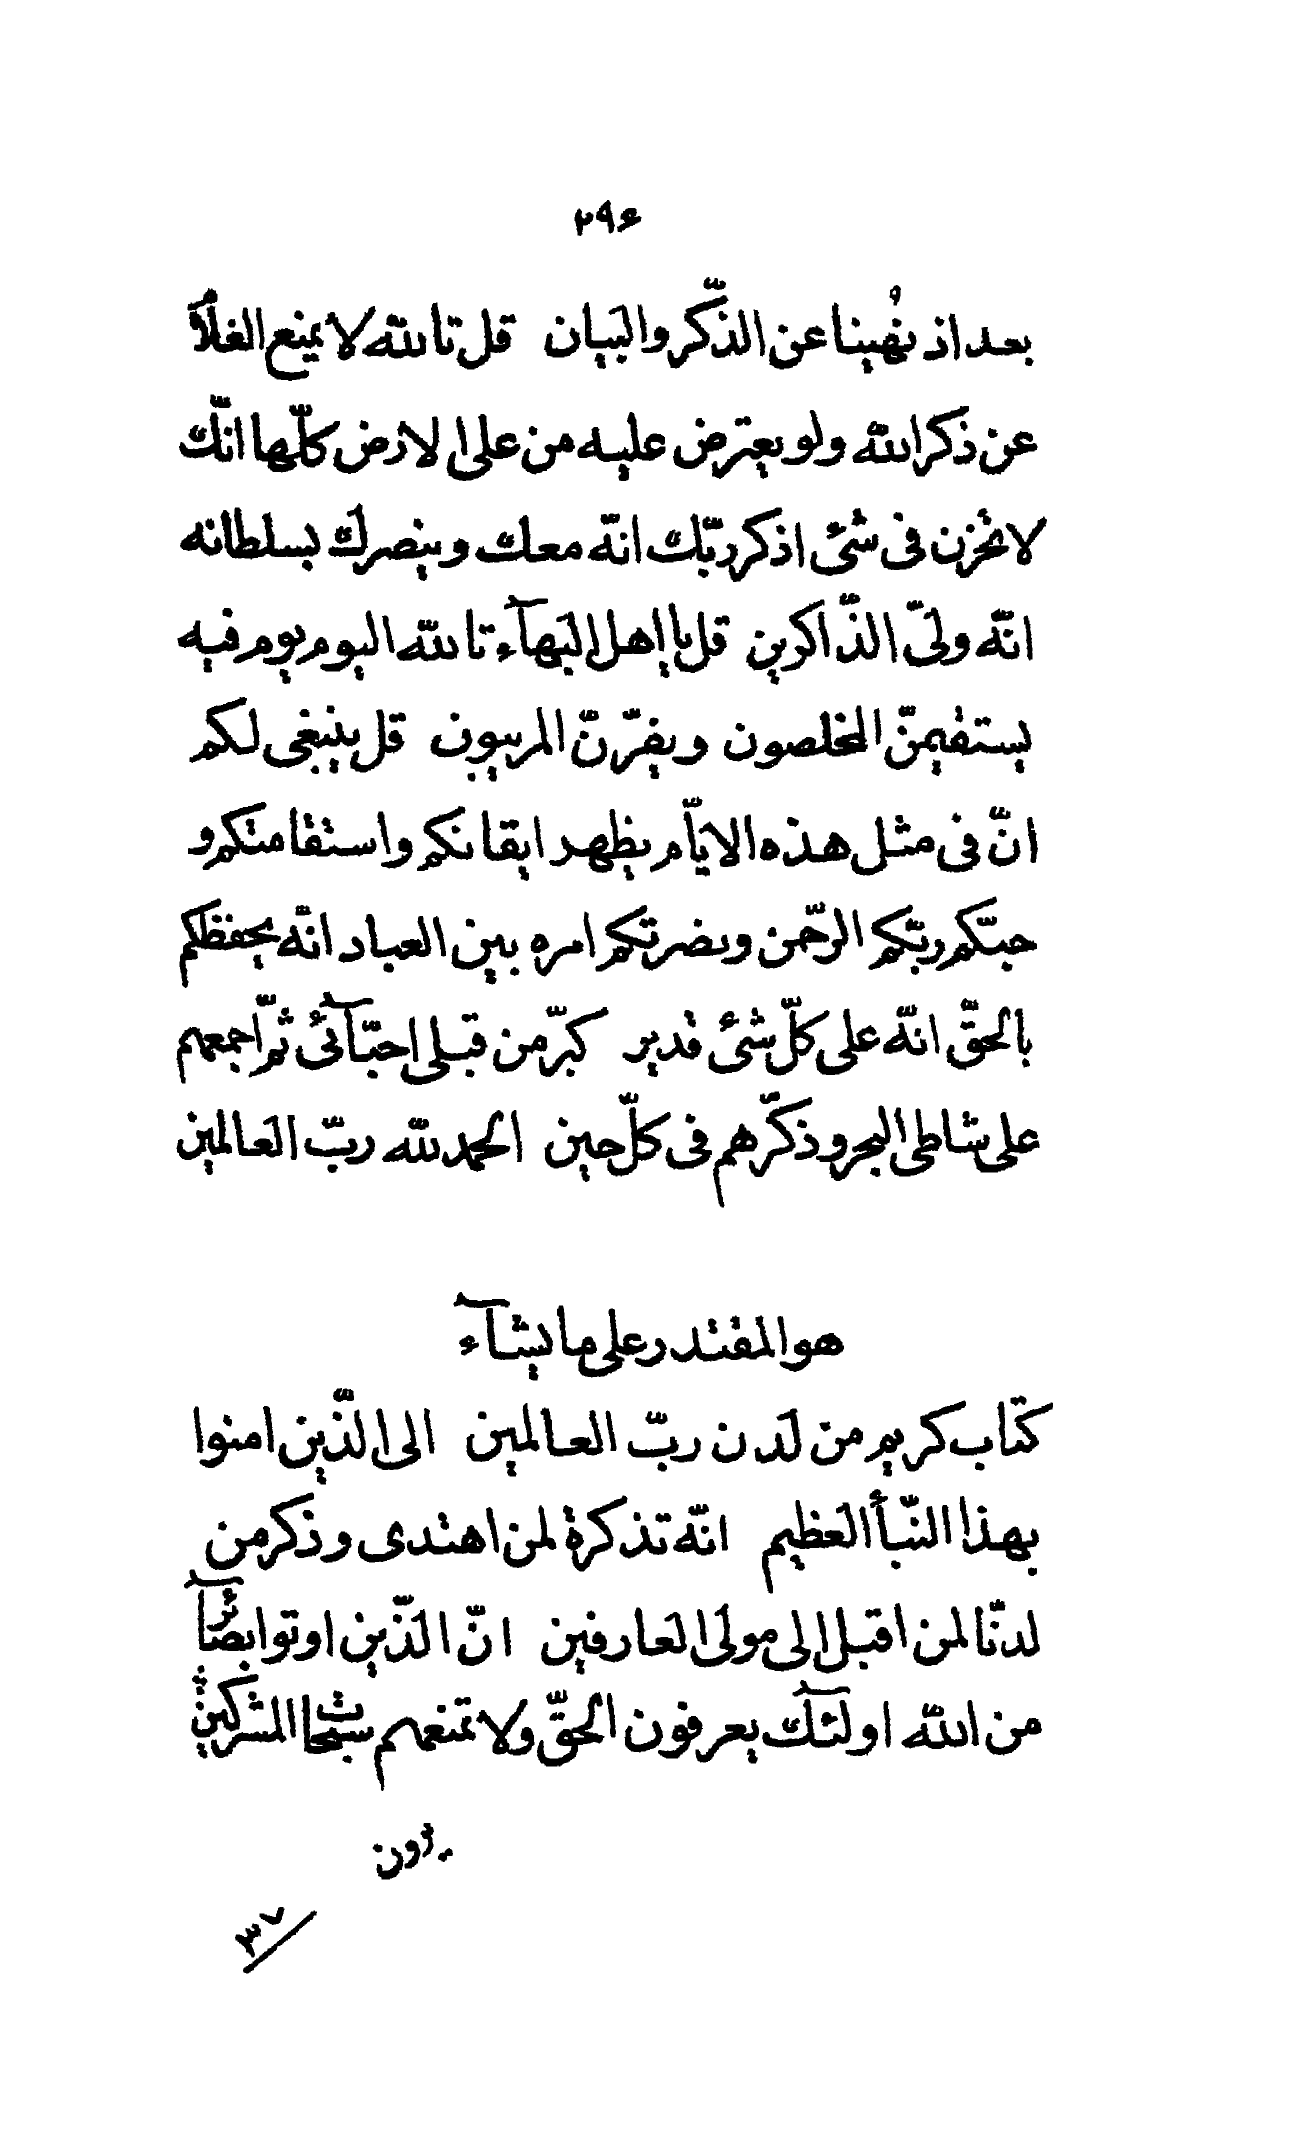 ٢٩۶
بعد اذ نهينا عن الذّكر و البيان قل تاللّه لا يمنع الغلام
عن ذكر اللّه ولو يعترض عليه من على الارض كلّها انّك
لا تحزن فى شئ اذكر ربّك انّه معك و ينصرك بسلطانه
انّه ولىّ الذّاكرين قل يا اهل البهآء تاللّه اليوم يوم فيه
يستقيمنّ المخلصون و يفرّنّ المريبون قل ينبغى لكم
انّ فى مثل هذه الايّام يظهر ايقانكم و استقامتكم و
حبّكم ربّكم الرّحمن و نصرتكم امره بين العباد انّه يحفظكم
بالحقّ انّه على كلّ شئ قدير كبّر من قبلى احبّآئى ثمّ اجمعهم
على شاطى البحر و ذكّرهم فى كلّ حين الحمد للّه ربّ العالمين
هو المقتدر على ما يشآء
كتاب كريم من لدن ربّ العالمين الى الّذين امنوا
بهذا النّبأ العظيم انّه تذكرة لمن اهتدى و ذكر من
لدنّا لمن اقبل الى مولى العارفين انّ الّذين اوتوا بصآئر
من اللّه اولئك يعرفون الحقّ و لا تمنعهم سبحات المشركين
يرون
٣٧